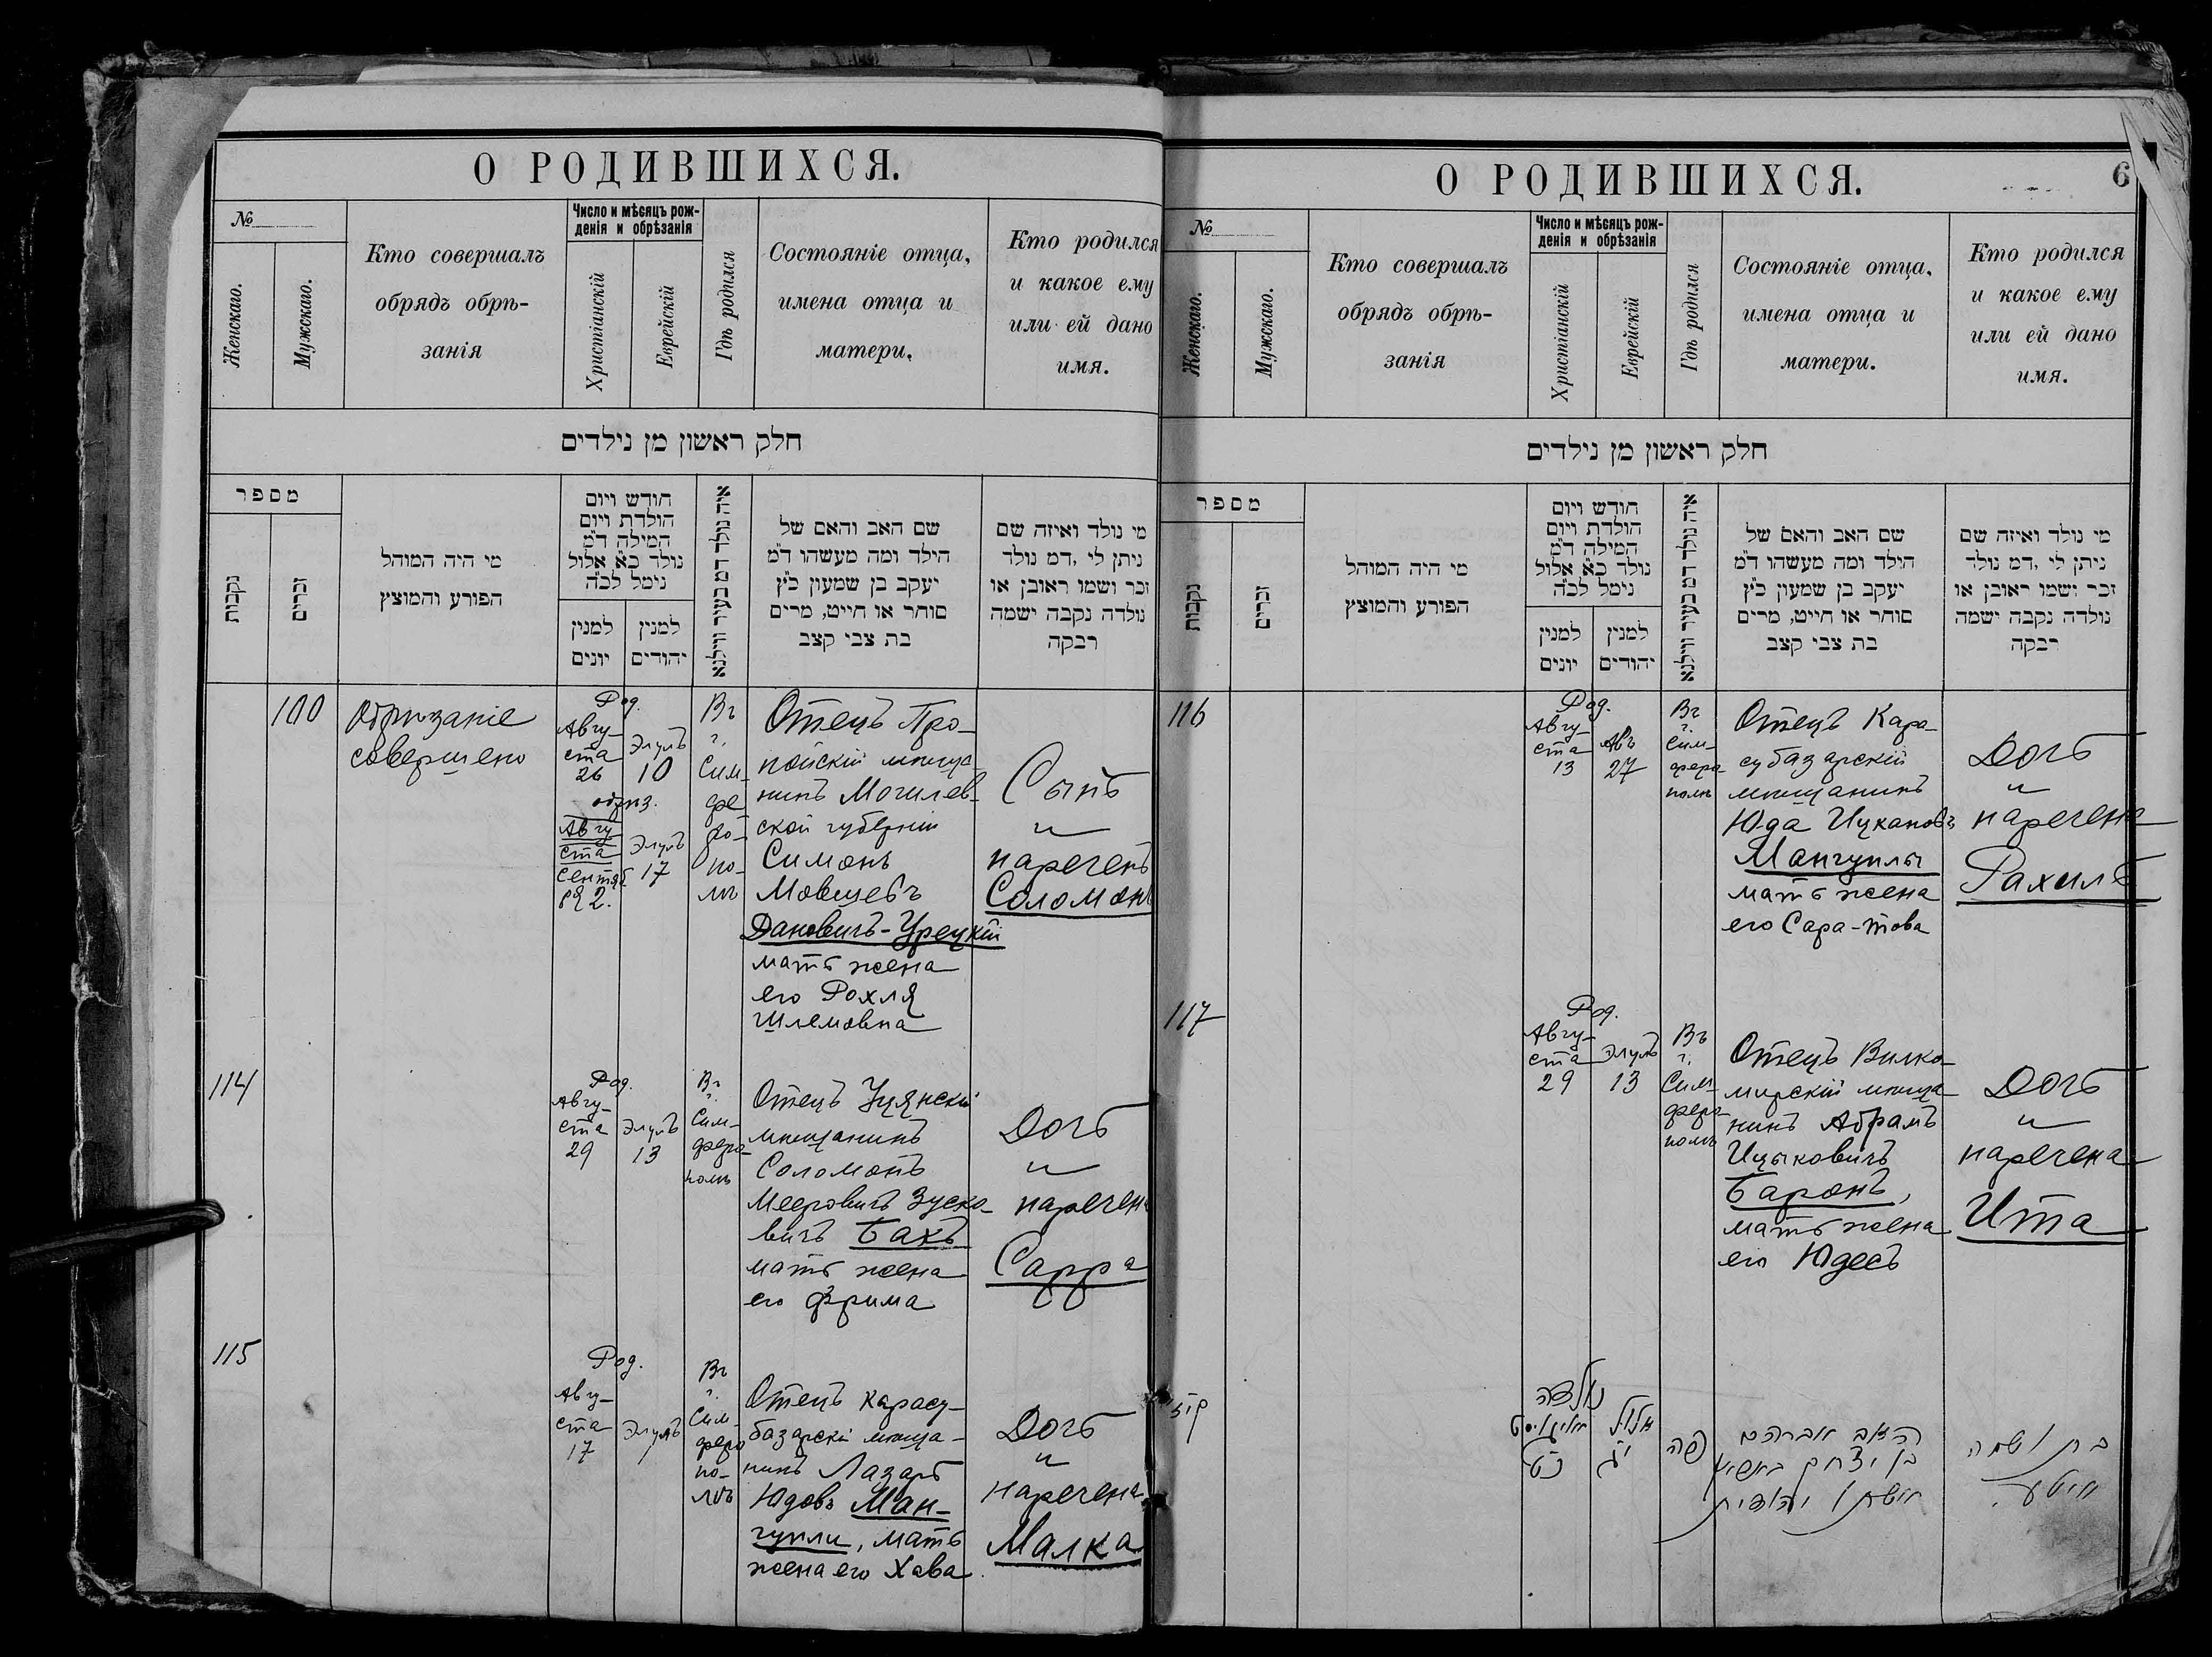 О РОДИВШИХСЯ.
№
Женскаго.
Мужскаго.
Кто совершалъ
обрядъ обрѣ-
занія
Число и мѣсяцъ рож-
денія и обрѣзанія
Христіанскій
Еврейскій
Гдѣ родился
Состояніе отца,
имена отца и
матери.
Кто родился
и какое ему
или ей дано
имя.
חלק ראשון מן נילדים
מספר
נקבות
זכרים
מי היה המוהל
הפורע והמוצץ
חודש ויום
הולדת ויום
המילה ד״מ
נולד כ״א אלול
נימל לכ״ה
למנין
יונים
למנין
יהודים
איה נולד דמ בעיר ווילנא
שם האב והאם של
הילד ומה מעשהו ד״מ
יעקב בן שמעון כ״ץ
סוחר או חייט, מרים
בת צבי קצב
מי נולד ואיזה שם
ניתן לי ,דמ נולד
זכר ושמו ראובן או
נולדה נקבה ישמה
רבקה
100
Обрѣзаніе
совершено
Род.
Авгу-
ста
26
Элулъ
10
обрѣз.
Авгу
ста
Сентяб
ря 2.
Элулъ
17
Въ
г.
Сим-
фе
ро-
по-
лѣ
Отецъ Про-
пойскій мѣща-
нинъ Могилев-
ской губерніи
Симонъ
Мовшевъ
Дановичъ-Урецкій
мать жена
его Рохля
Шлемовна
Сынъ
и
нареченъ
Соломонъ
114
Род.
Авгу-
ста
29
Элулъ
13
Въ
г.
Сим-
феро-
полѣ
Отецъ Уцянскій
мѣщанинъ
Соломонъ
Мееровичъ Зуско-
вичъ Бахъ
мать жена
его Фрима
Дочь
и
наречена
Сарра
115
Род.
Авгу-
ста
17
Элулъ
1
Въ
г.
Сим
феро
по-
лѣ
Отецъ Карасу-
базарскі мѣща-
нинъ Лазарь
Юдовъ Ман-
гупли, мать
жена его Хава
Дочь
и
наречена
Малка
О РОДИВШИХСЯ.
6
№
Женскаго.
Мужскаго.
Кто совершалъ
обрядъ обрѣ-
занія
Число и мѣсяцъ рож-
денія и обрѣзанія
Христіанскій
Еврейскій
Гдѣ родился
Состояніе отца,
имена отца и
матери.
Кто родился
и какое ему
или ей дано
имя.
חלק ראשון מן נילדים
מספר
נקבות
זכרים
מי היה המוהל
הפורע והמוצץ
חודש ויום
הולדת ויום
המילה ד״מ
נולד כ״א אלול
נימל לכ״ה
למנין
יונים
למנין
יהודים
איה נולד דמ בעיר ווילנא
שם האב והאם של
הילד ומה מעשהו ד״מ
יעקב בן שמעון כ״ץ
סוחר או חייט, מרים
בת צבי קצב
מי נולד ואיזה שם
ניתן לי ,דמ נולד
זכר ושמו ראובן או
נולדה נקבה ישמה
רבקה
116
Род.
Авгу-
ста
13
Авъ
27
Въ
г.
Сим-
феро-
полѣ
Отецъ Кара-
субазарскій
мѣщанинъ
Юда Ицкановъ
Мангуплы
мать жена
его Сара-това
Дочь
и
наречена
Рахиль
117
Род.
Авгу-
ста
29
Элулъ
13
Въ
г.
Сим-
феро-
полѣ
Отецъ Вилко-
мирскій мѣща-
нинъ Абрамъ
Ицыковичъ
Баронъ,
мать жена
его Юдесъ
Дочь
и
наречена
Ита
קיז
נולדה
אויגוסט
כט
אלול
יג
פה
האב אברהם
בן יצחק
אשתו יהודית
בת ושמה
איטע.